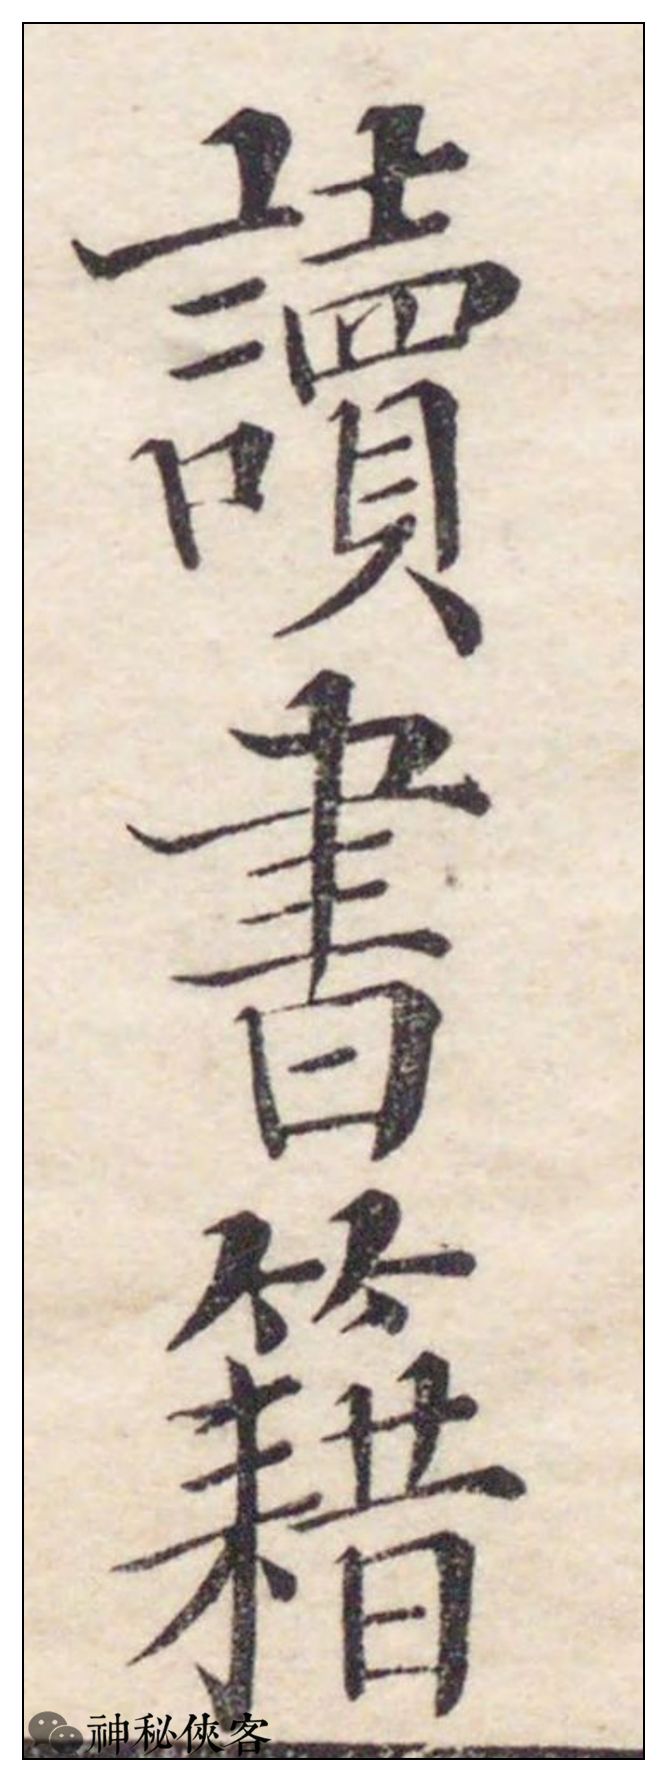 讀書籍
神秘俠客